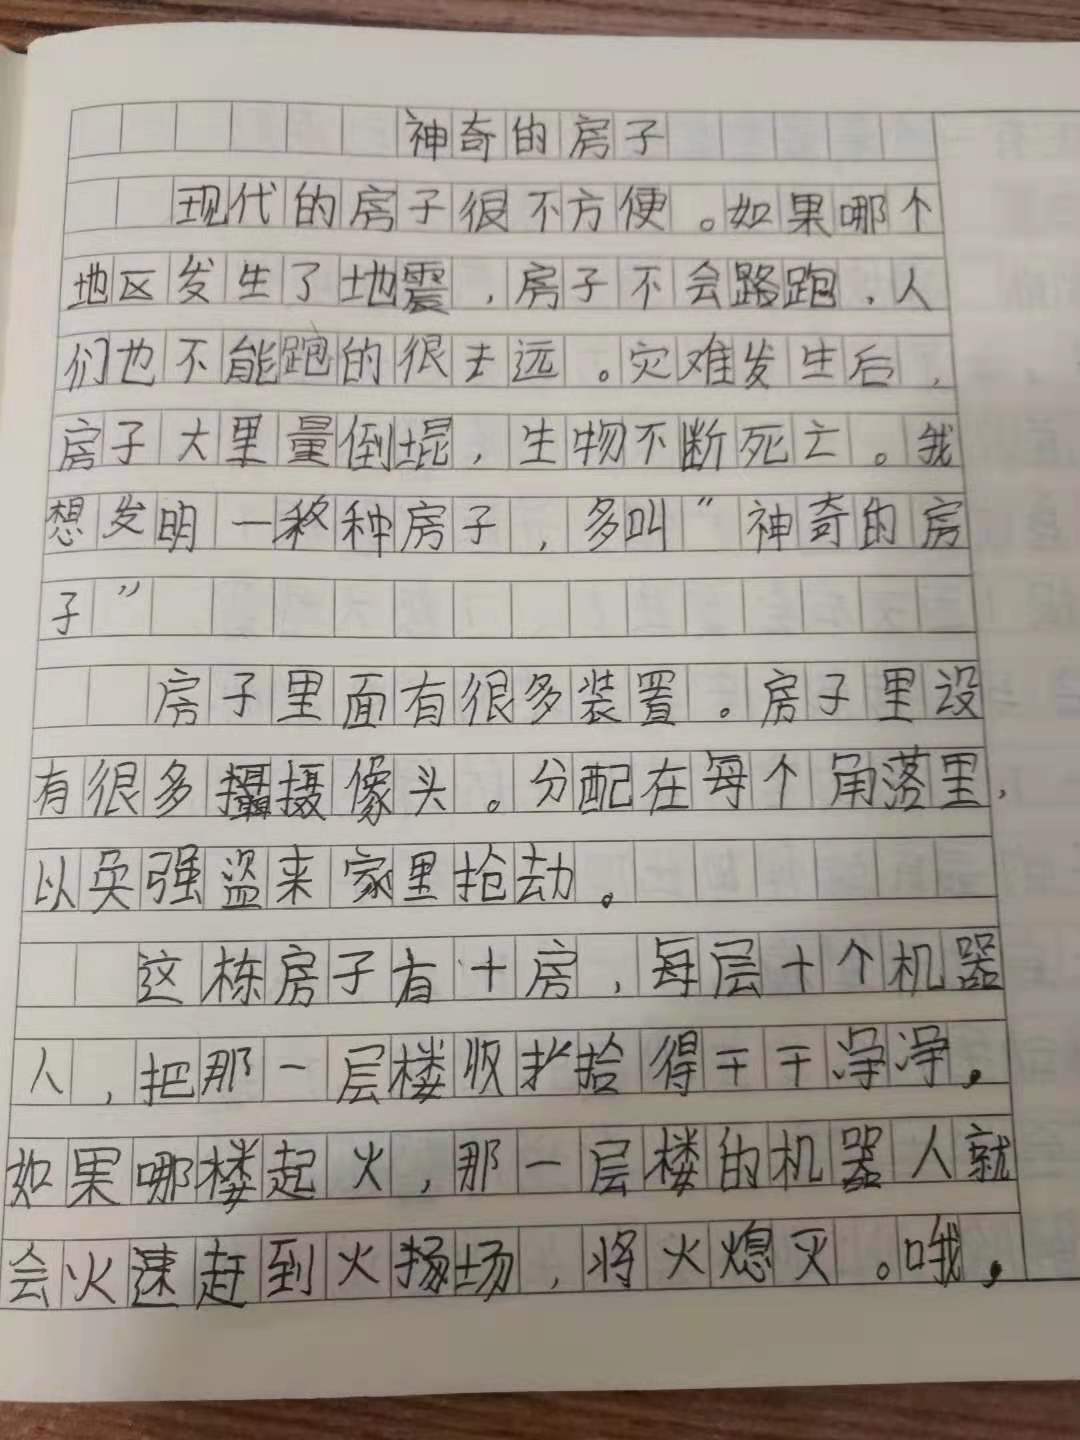 神奇的房子
现代的房子很不方便。如果哪个
地区发生了地震，房子不会路跑，人
们也不能跑的很去远。灾难发生后，
房子大里量倒坭，生物不断死亡。我
想发明一移种房子，多叫”神奇的房
子”
房子里面有很多装置。房子里设
有很多摄像头。分配在每个角落里，
以免强盗来家里抢劫。
这栋房子有十房，每层十个机器
人，把那一层楼收拾得干干净净，
如果哪楼起火，那一层楼的机器人就
会火速赶到火扬场，将火熄灭。哦，